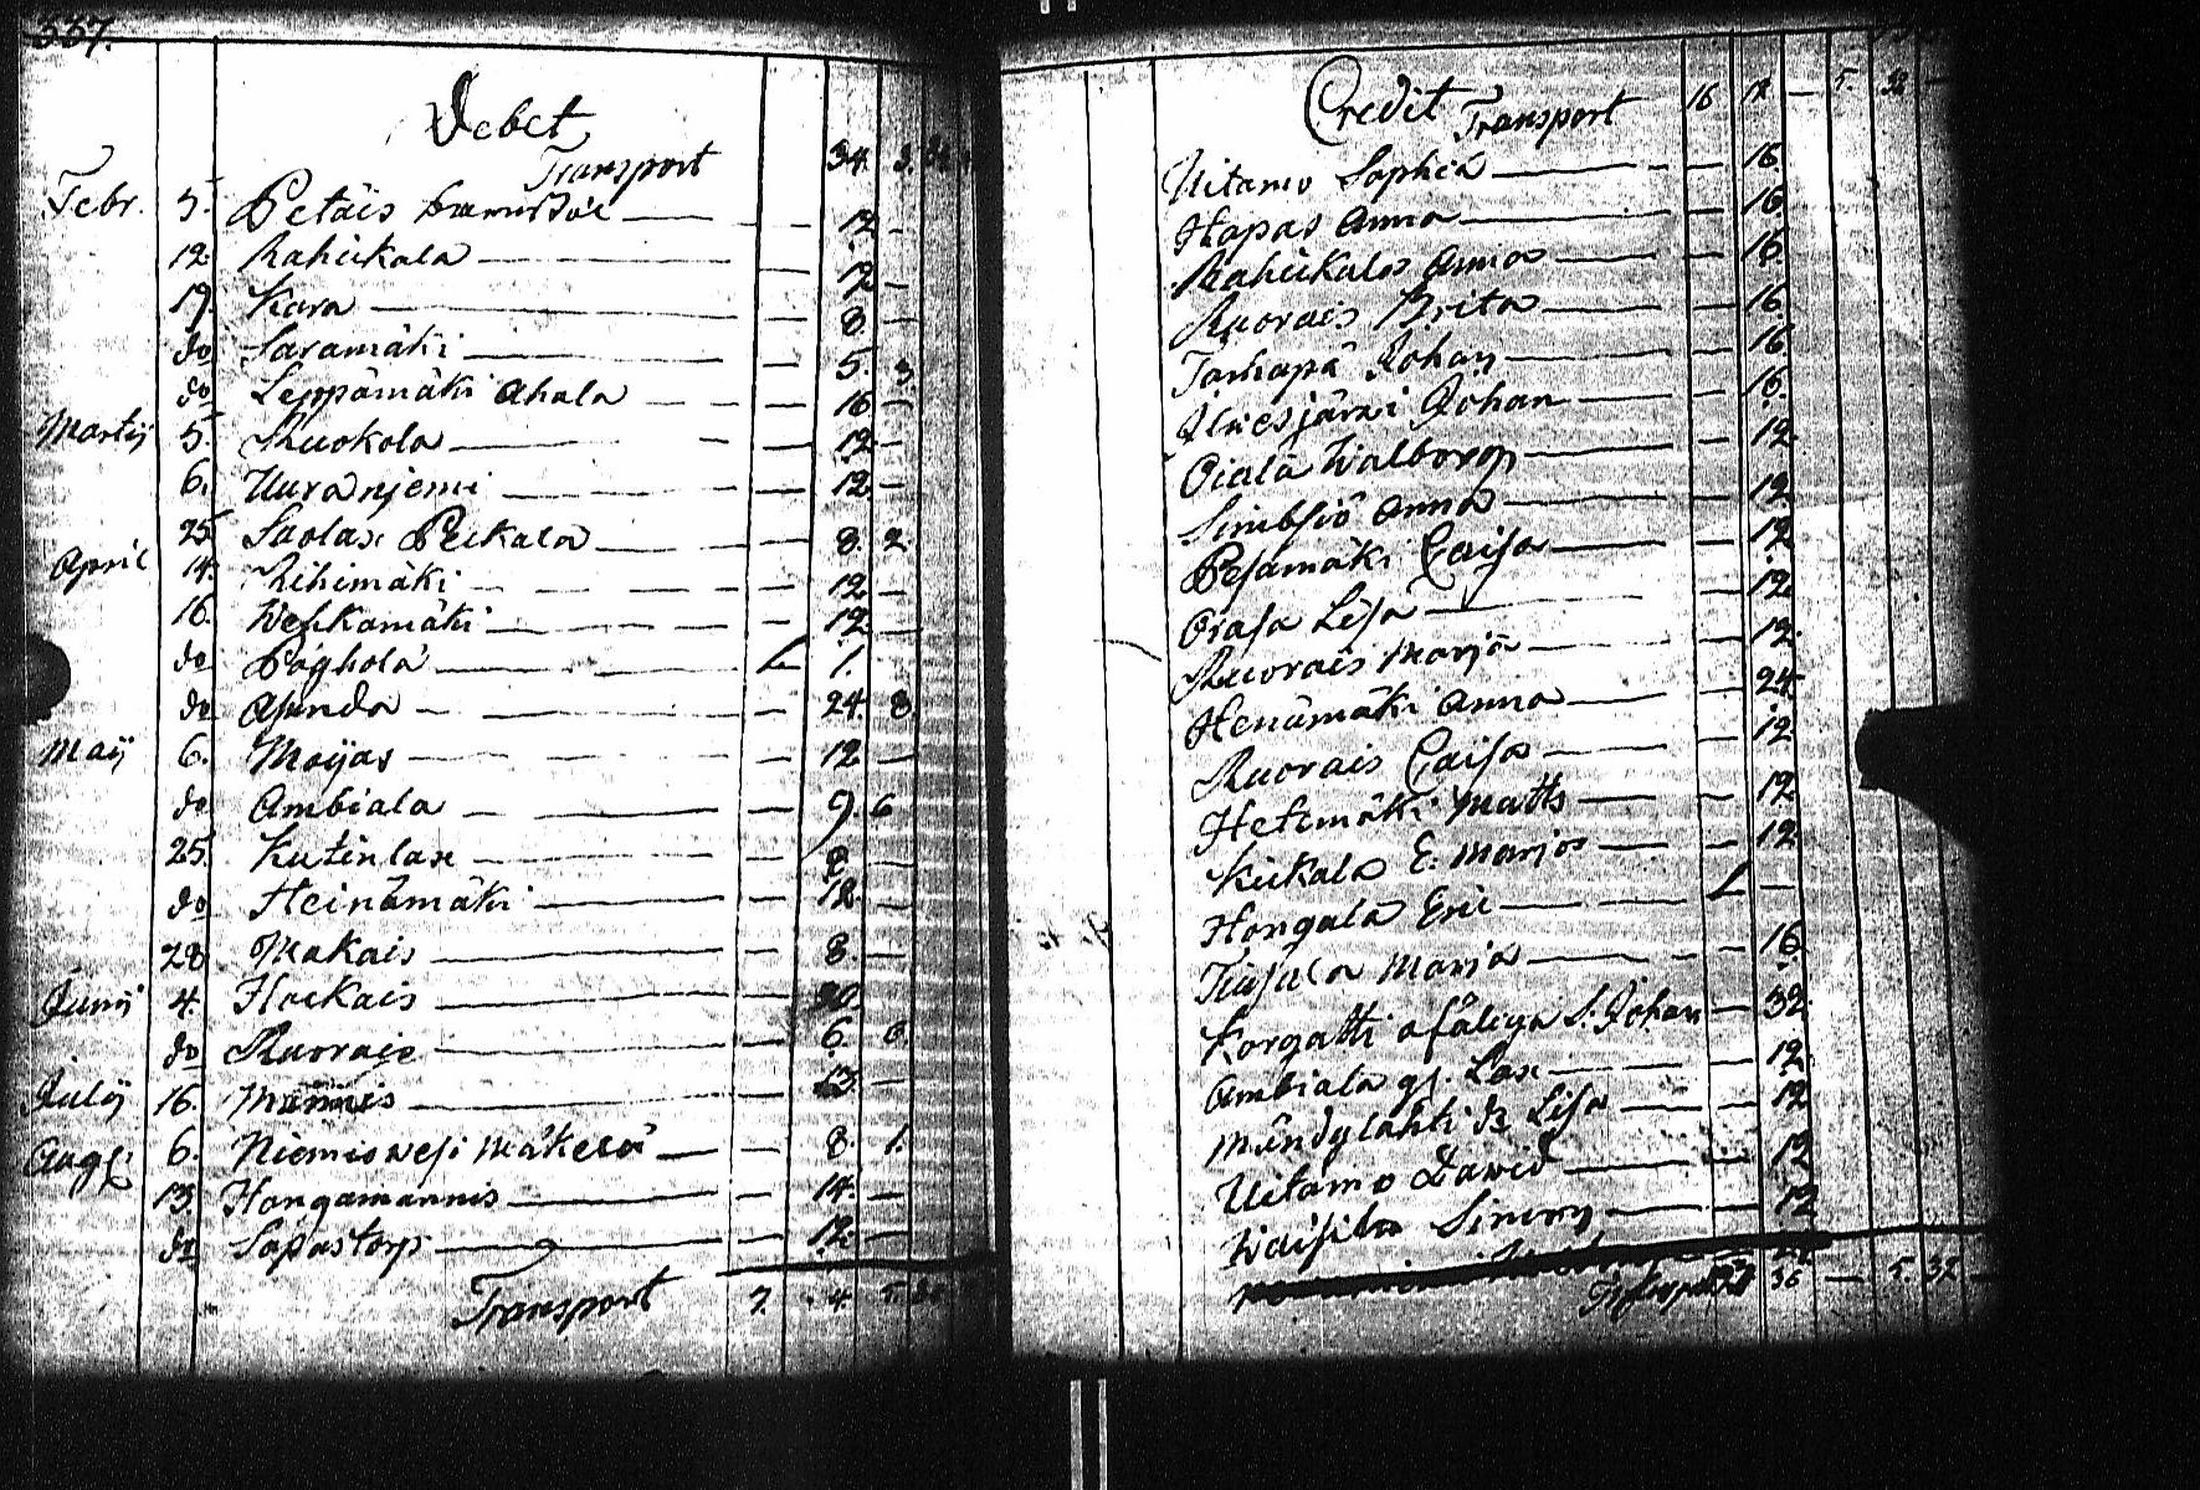 337.
Debet
Transport 34. 3.
Febr. 5. Petäis — — 12 —
12. Rahickala — — 12 —
19. Kara — — 8. —
do Saramäki — — 5. 3.
do Leppämäki Ahala — — 16 —
Martij 5. Kuokola — — 12 —
6. Uuraniemi — — 12. —
25 Saolax Peckala — — 8. 2.
April 14. Rihimäki — — 12 —
16. Wehkamäki — — 12. —
do Påghola — 1.
do Asunda — — 24. 8.
Maij 6. Moijas — — 12 —
do Ambiala — — 9. 6
25. Kutinlax — — 8 —
do Heinämäki — — 12. —
28 Makais — — 8. —
Junij 4. Hockais —
do Kuorais — 6. 6.
Julij 16. — 13. —
Aug. 6. Niemiswesi Mäkelä — — 8. 1.
13. Hongamannis — — 14. —
do Sapastorp — — 12. —
Transport 7. 4. 5.
Credit Transport 16 12 — 5. 32 —
Uitamo Sophia — — 16.
Hapas Anna — — 16.
Rahickala Anna — — 16.
Kuorais Brita — — 16.
Tanhapä Johan — — 16.
Ilwesjärwi Johan — — 16.
Oiala Walborg — — 12.
Simbsiö Anna — — 12.
Pesämäki Caisa — — 12
Orasa Lisa — — 12.
Kuorais Marja — — 12.
Henämäki Anna — — 24.
Kuorais Caisa — — 12.
Hetemäki Matts — — 12.
Kickala E. Marja — — 12.
Hongala Eric — 1 —
Marja — — 16.
Korgatti S. Johan — 32.
Ambiala gl. Lax — — 12.
Mändylahti do Lisa — — 12
Uitamo Dawid — — 12
Waisila Simon — — 12
36 — 5. 32 —